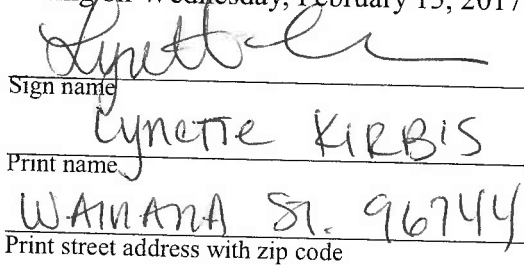 on Wednesday, February 15, 2017
Sign name
Lynette KIRBIS
Print name
WAINANA ST. 96744
Print street address with zip code